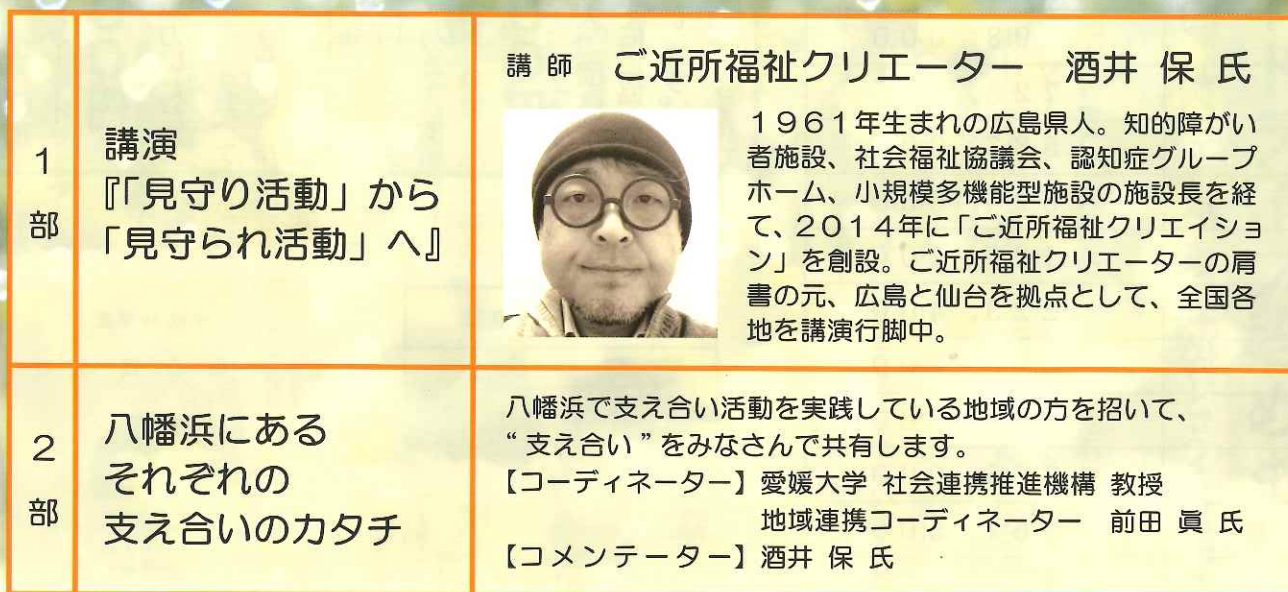 1
部
講演
『「見守り活動」から
「見守られ活動」へ』
講 師　ご近所福祉クリエーター　酒井 保 氏
1961年生まれの広島県人。知的障がい
者施設、社会福祉協議会、認知症グループ
ホーム、小規模多機能型施設の施設長を経
て、2014年に「ご近所福祉クリエイショ
ン」を創設。ご近所福祉クリエーターの肩
書の元、広島と仙台を拠点として、全国各
地を講演行脚中。
2
部
八幡浜にある
それぞれの
支え合いのカタチ
八幡浜で支え合い活動を実践している地域の方を招いて、
“支え合い”をみなさんで共有します。
【コーディネーター】愛媛大学 社会連携推進機構 教授
地域連携コーディネーター　前田 眞 氏
【コメンテーター】酒井 保 氏